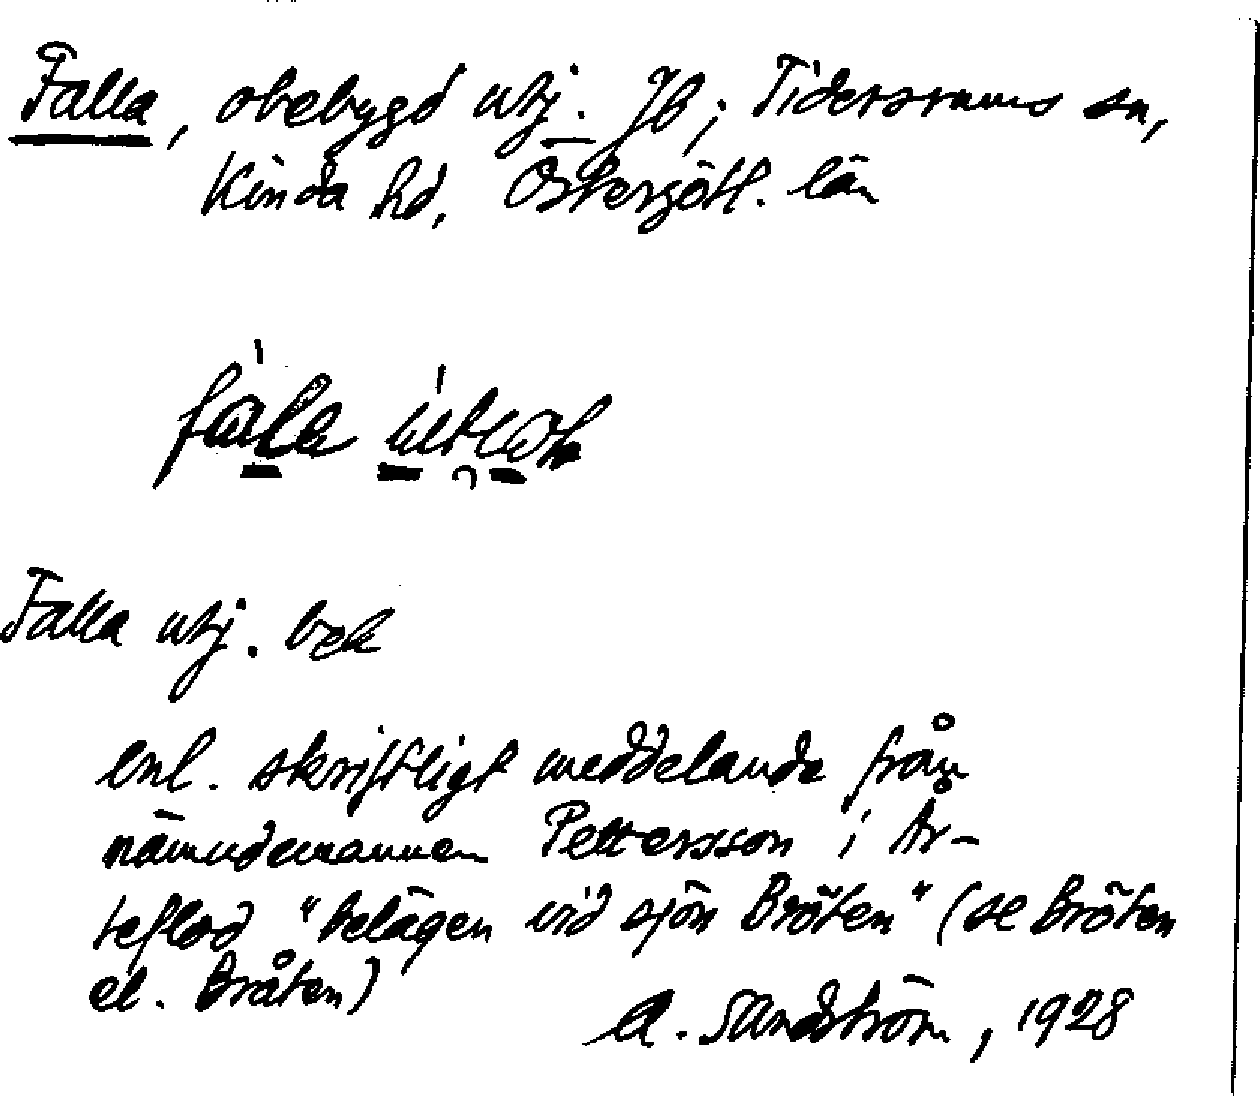 Falla, obebygd utj. Jb; Tidersrums sn,
Kinda hd, Östergötl. län
Falla utj. bek
enl. skriftligt meddelande från
nämndemannen Pettersson i År-
teflod "belägen vid sjön Bröten" (se Bröten
el. Bråten)
A. Sandström, 1928